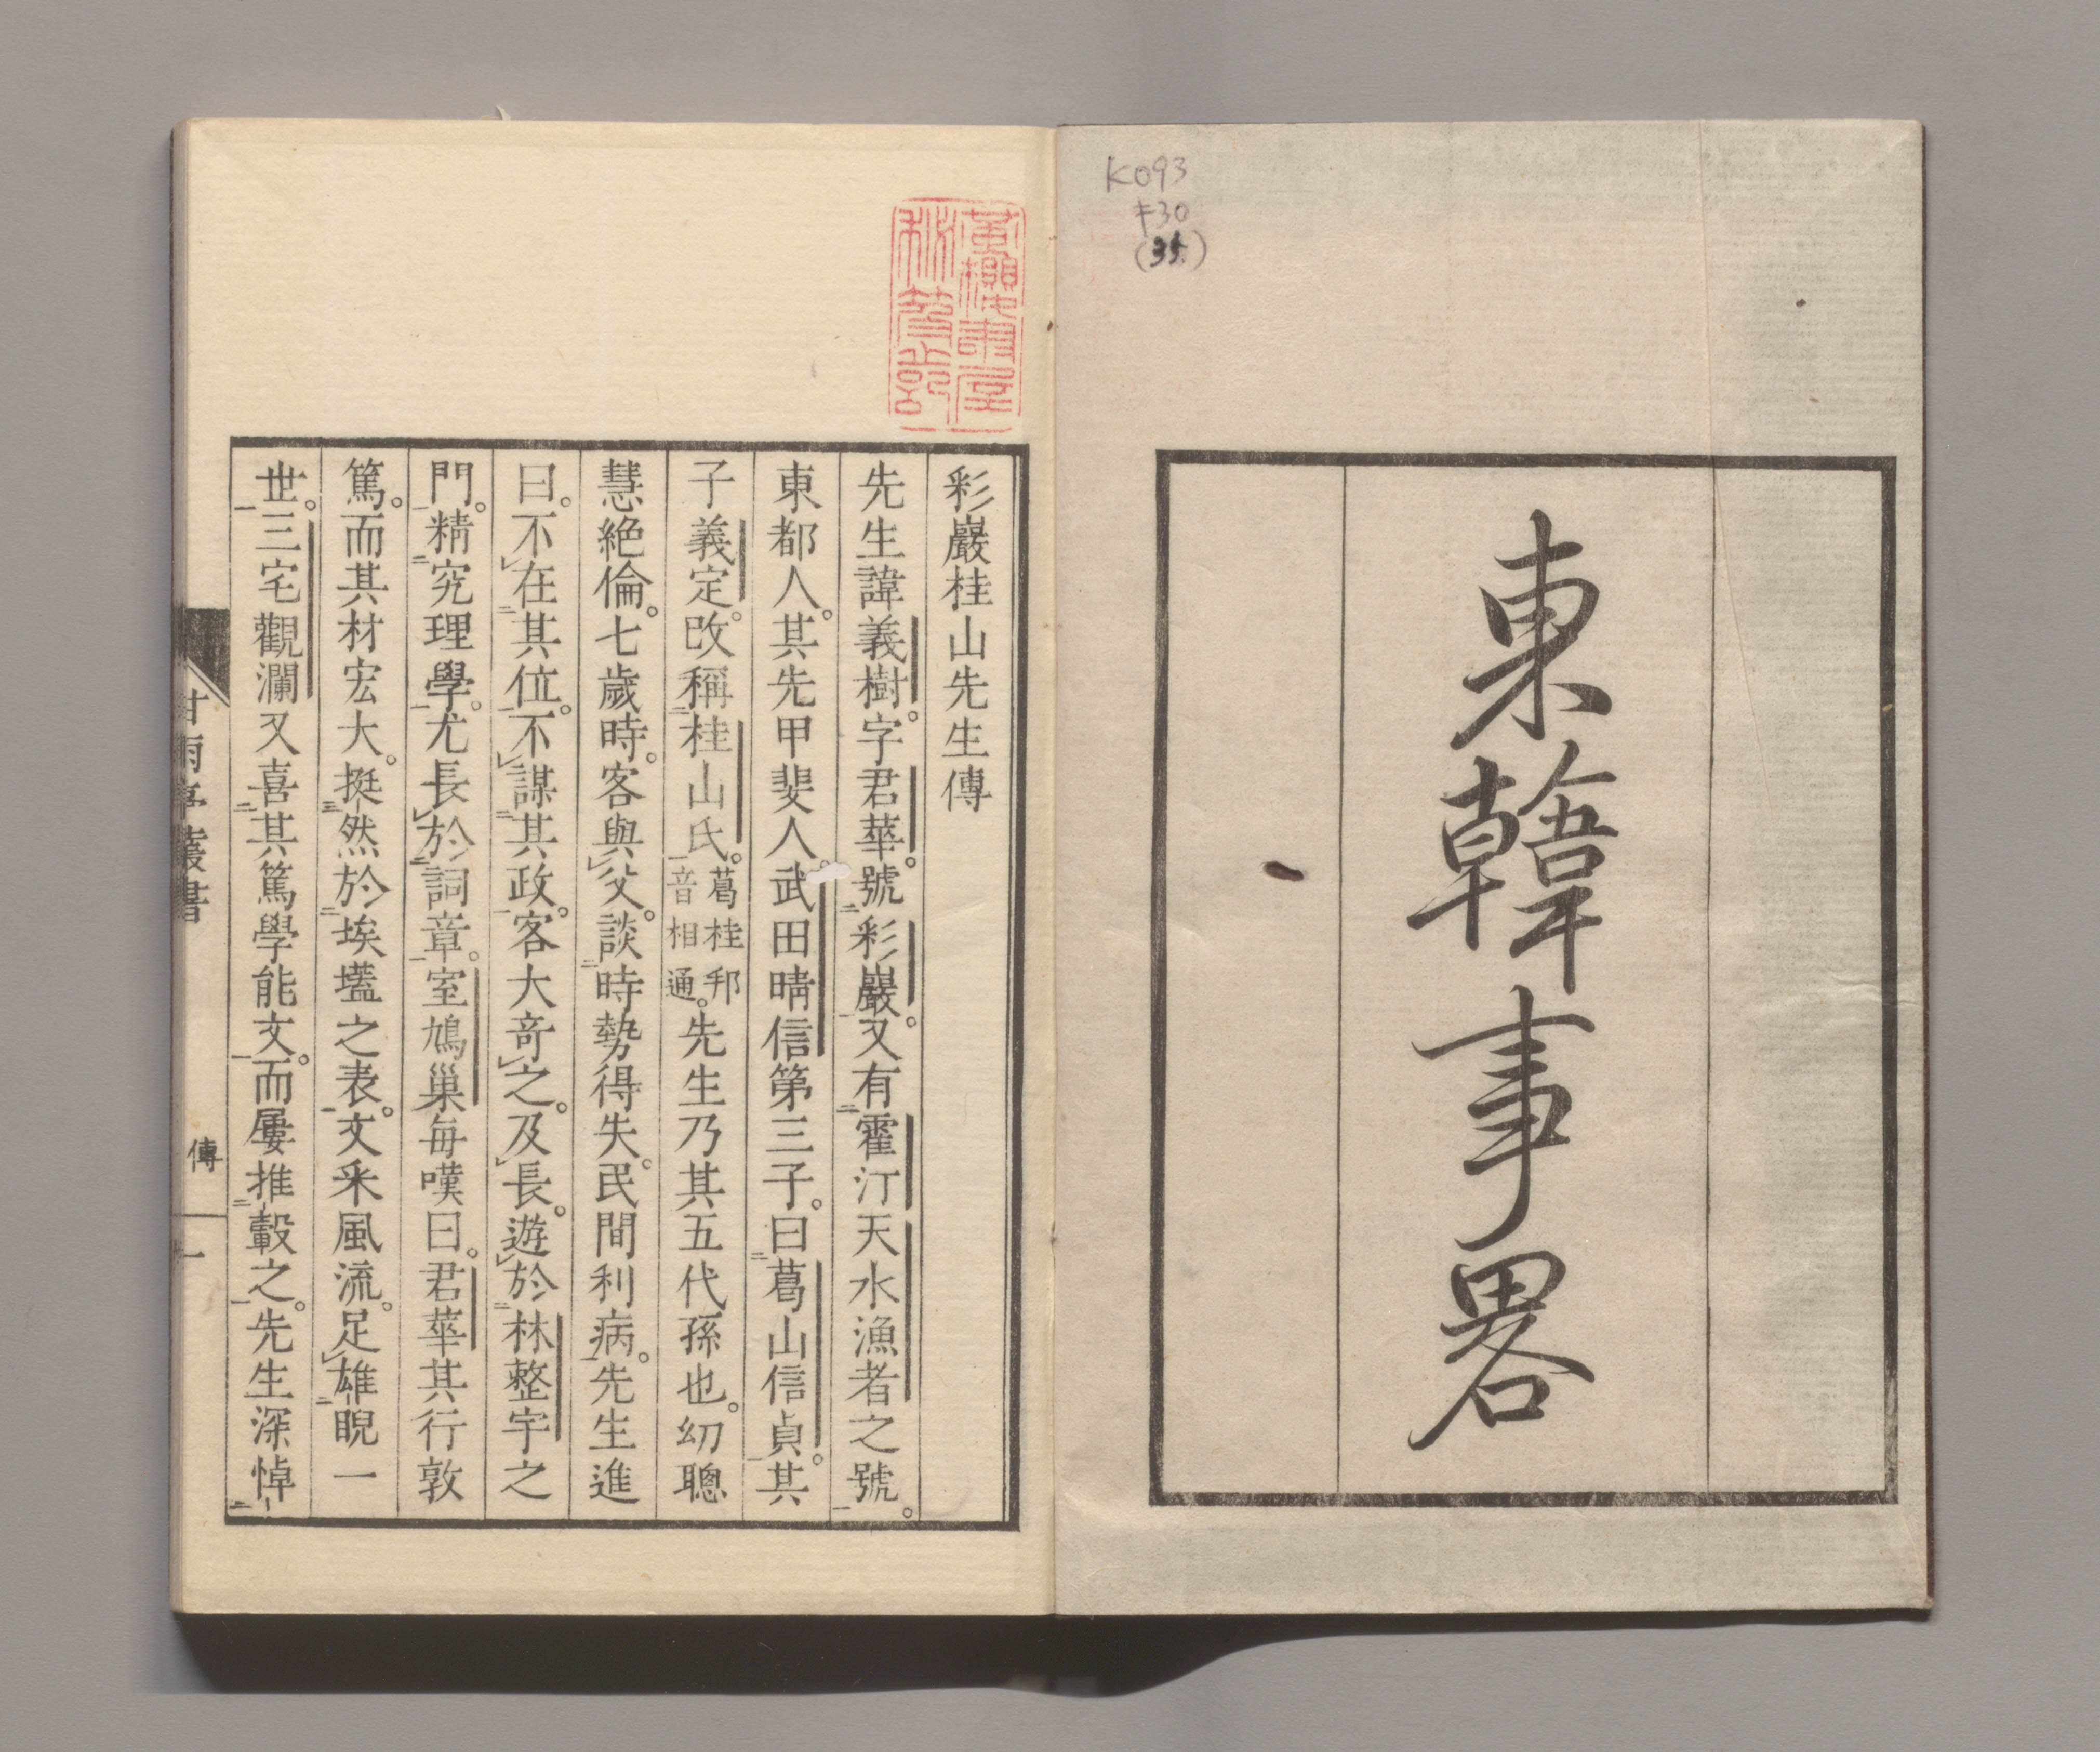 K093
キ30
(35)
東韓事畧
彩巖桂山先生傳
先生諱義樹。字君華。號彩巖。又有霍汀天水漁者之號。
東都人。其先甲斐人。武田晴信第三子。曰葛山信貞。其
子義定。改稱桂山氏。葛桂邦音相通。先生乃其五代孫也。幼聰
慧絶倫。七歲時。客與父。談時勢得失。民間利病。先生進
曰。不在其位。不謀其政。客大奇之。及長。遊於林整宇之
門。精究理學。尤長於詞章。室鳩巢每嘆曰。君華其行敦
篤。而其材宏大。挺然於埃壒之表。文采風流。足雄睨一
世。三宅觀瀾又喜其篤學能文。而屢推轂之。先生深悼
甘雨亭叢書
傳
一